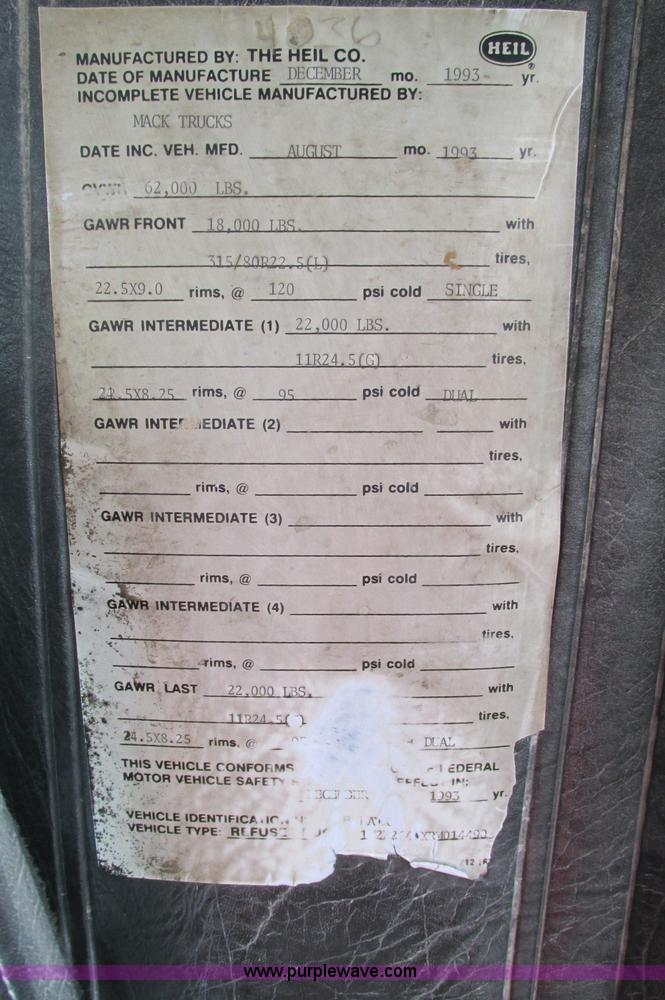 4036
HEIL
®
MANUFACTURED BY: THE HEIL CO.
DATE OF MANUFACTURE DECEMBER mo. 1993 yr.
INCOMPLETE VEHICLE MANUFACTURED BY:
MACK TRUCKS
DATE INC. VEH. MFD. AUGUST mo. 1993 yr.
62,000 LBS.
GAWR FRONT 18,000 LBS. with
315/80R22.5(L) tires,
22.5X9.0 rims, @ 120 psi cold SINGLE
GAWR INTERMEDIATE (1) 22,000 LBS. with
11R24.5(G) tires,
24.5X8.25 rims, @ 95 psi cold DUAL
GAWR INTERMEDIATE (2) with
tires,
rims, @ psi cold
GAWR INTERMEDIATE (3) with
tires,
rims, @ psi cold
GAWR INTERMEDIATE (4) with
tires,
rims, @ psi cold
GAWR LAST 22,000 LBS. with
tires,
24.5X8.25 rims, @ DUAL
THIS VEHICLE CONFORMS FEDERAL
MOTOR VEHICLE SAFETY IN:
1993 yr.
VEHICLE
VEHICLE TYPE:
www.purplewave.com